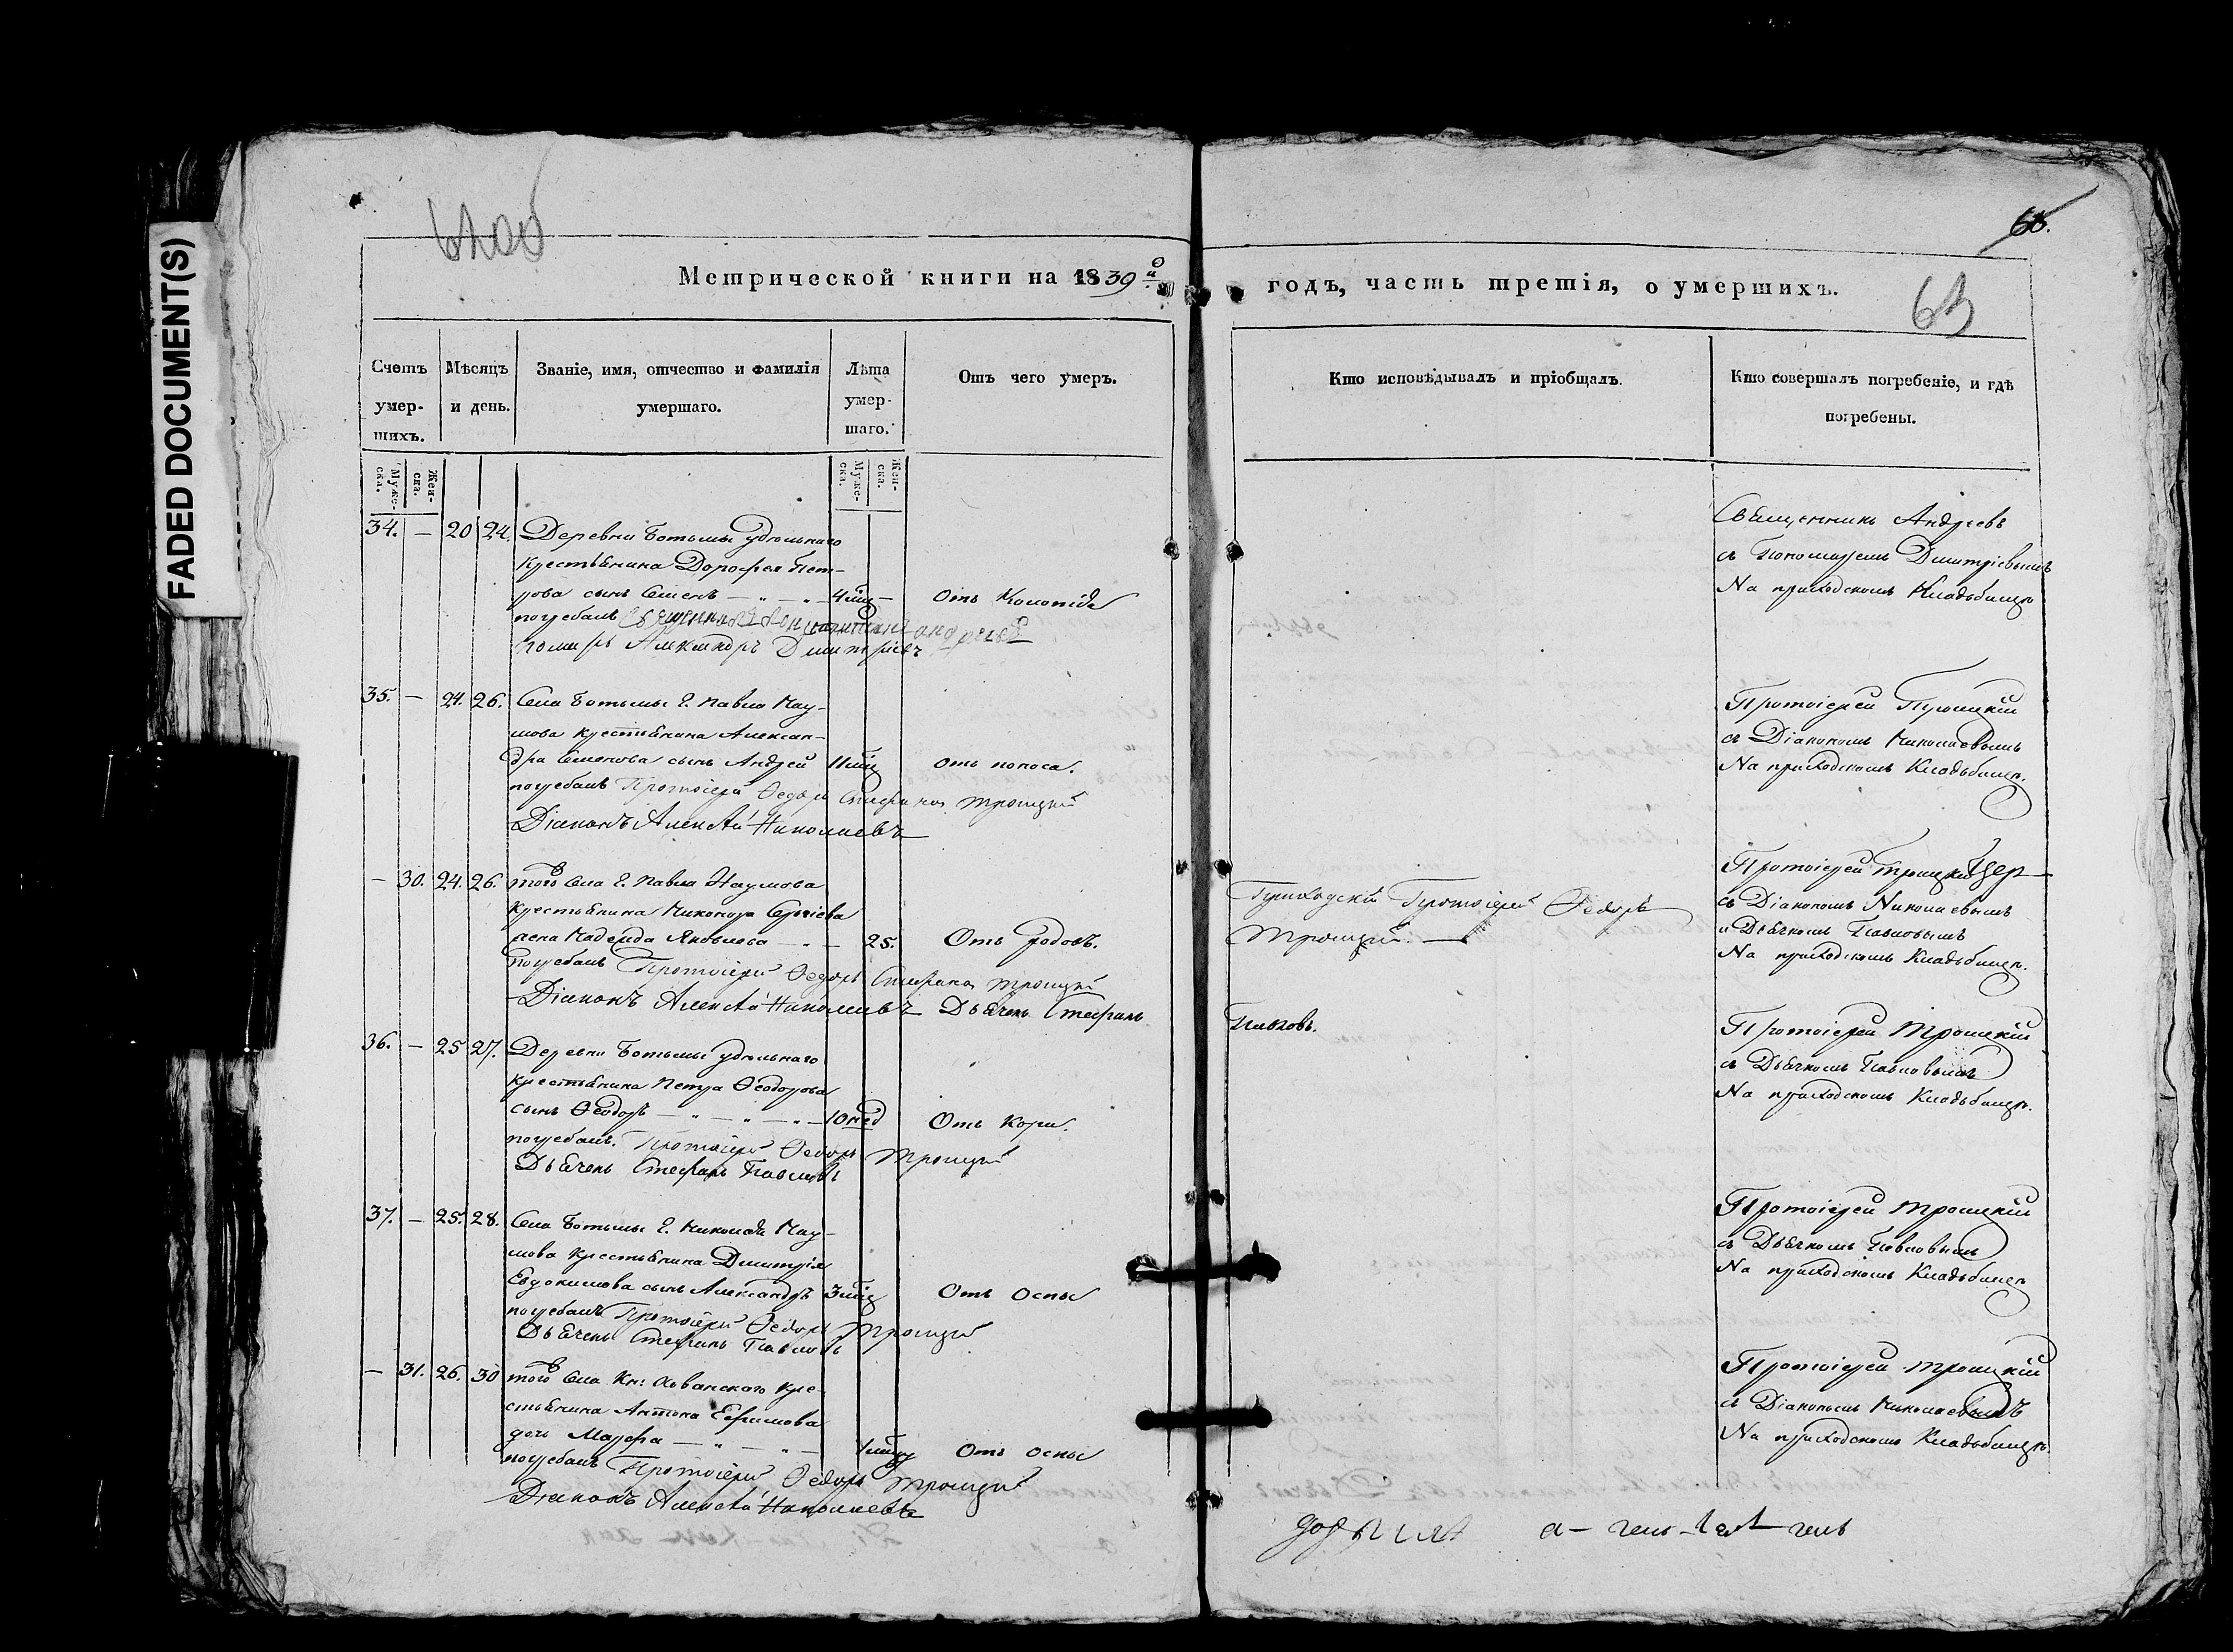 FADED DOCUMENT(S)
63
Метрической книги на 1839й
годъ, часть третія, о умершихъ.
Счетъ умер-шихъ.
Мѣсяцъ и день.
Званіе, имя, отчество и фамилія умершаго.
Лѣта умер-шаго.
Отъ чего умеръ.
Кто исповѣдывалъ и пріобщалъ.
Кто совершалъ погребеніе, и гдѣ погребены.
Муже-ска.
Жен-ска.
Муже-ска.
Жен-ска.
34. — 20 24. Деревни Ботьмы удѣльнаго
крестьянина Дорофея Пет-
рова сынъ Семенъ — 4 мцъ —
погребалъ Священникъ Константинъ Андреевъ
Александръ Дмитріевъ
Священникъ Андреевъ
съ Пономаремъ Дмитріевымъ
На приходскомъ Кладбищѣ
35. — 24. 26. Села Ботьмы Г. Павла Нау-
мова крестьянина Алексан-
дра Семенова сынъ Андрей 11 мцъ отъ поноса.
погребалъ Протоіерей Ѳедоръ Стефановъ Троицкій
Діаконъ Алексѣй Николаевъ
Протоіерей Троицкій
съ Діакономъ Николаевымъ
На приходскомъ Кладбищѣ.
— 30. 24. 26. того Села Г. Павла Наумова
крестьянина Никонора Сергіева
жена Надежда Яковлева — 25. Отъ родовъ.
погребалъ Протоіерей Ѳедоръ Стефановъ Троицкій
Діаконъ Алексѣй Николаевъ Дьячекъ Стефанъ
Павловъ.
Приходскій Протоіерей Ѳедоръ
Троицкій. —
Протоіерей Троицкій
съ Діакономъ Николаевымъ
и Дьячкомъ Павловымъ
На приходскомъ Кладбищѣ.
36. — 25 27. Деревни Ботьмы удѣльнаго
крестьянина Петра Ѳеодорова
сынъ Ѳеодоръ — 10 нед Отъ Кори.
погребалъ. Протоіерей Ѳедоръ Троицкій
Дьячекъ Стефанъ Павловъ
Протоіерей Троицкій
съ Дьячкомъ Павловымъ
На приходскомъ Кладбищѣ.
37. — 25. 28. Села Ботьмы Г. Николая Нау-
мова крестьянина Дмитрія
Евдокимова сынъ Александръ 3 мцъ Отъ Оспы
погребалъ Протоіерей Ѳедоръ Троицкій
Дьячекъ Стефанъ Павловъ
Протоіерей Троицкій
съ Дьячкомъ Павловымъ
На приходскомъ Кладбищѣ
— 31. 26. 30 того Села Кн: Хованского кре-
стьянина Антона Ефимова
дочь Марфа — Отъ Оспы
погребалъ Протоіерей Ѳедоръ Троицкій
Діаконъ Алексѣй Николаевъ
Протоіерей Троицкій
съ Діакономъ Николаевымъ
На приходскомъ Кладбищѣ.